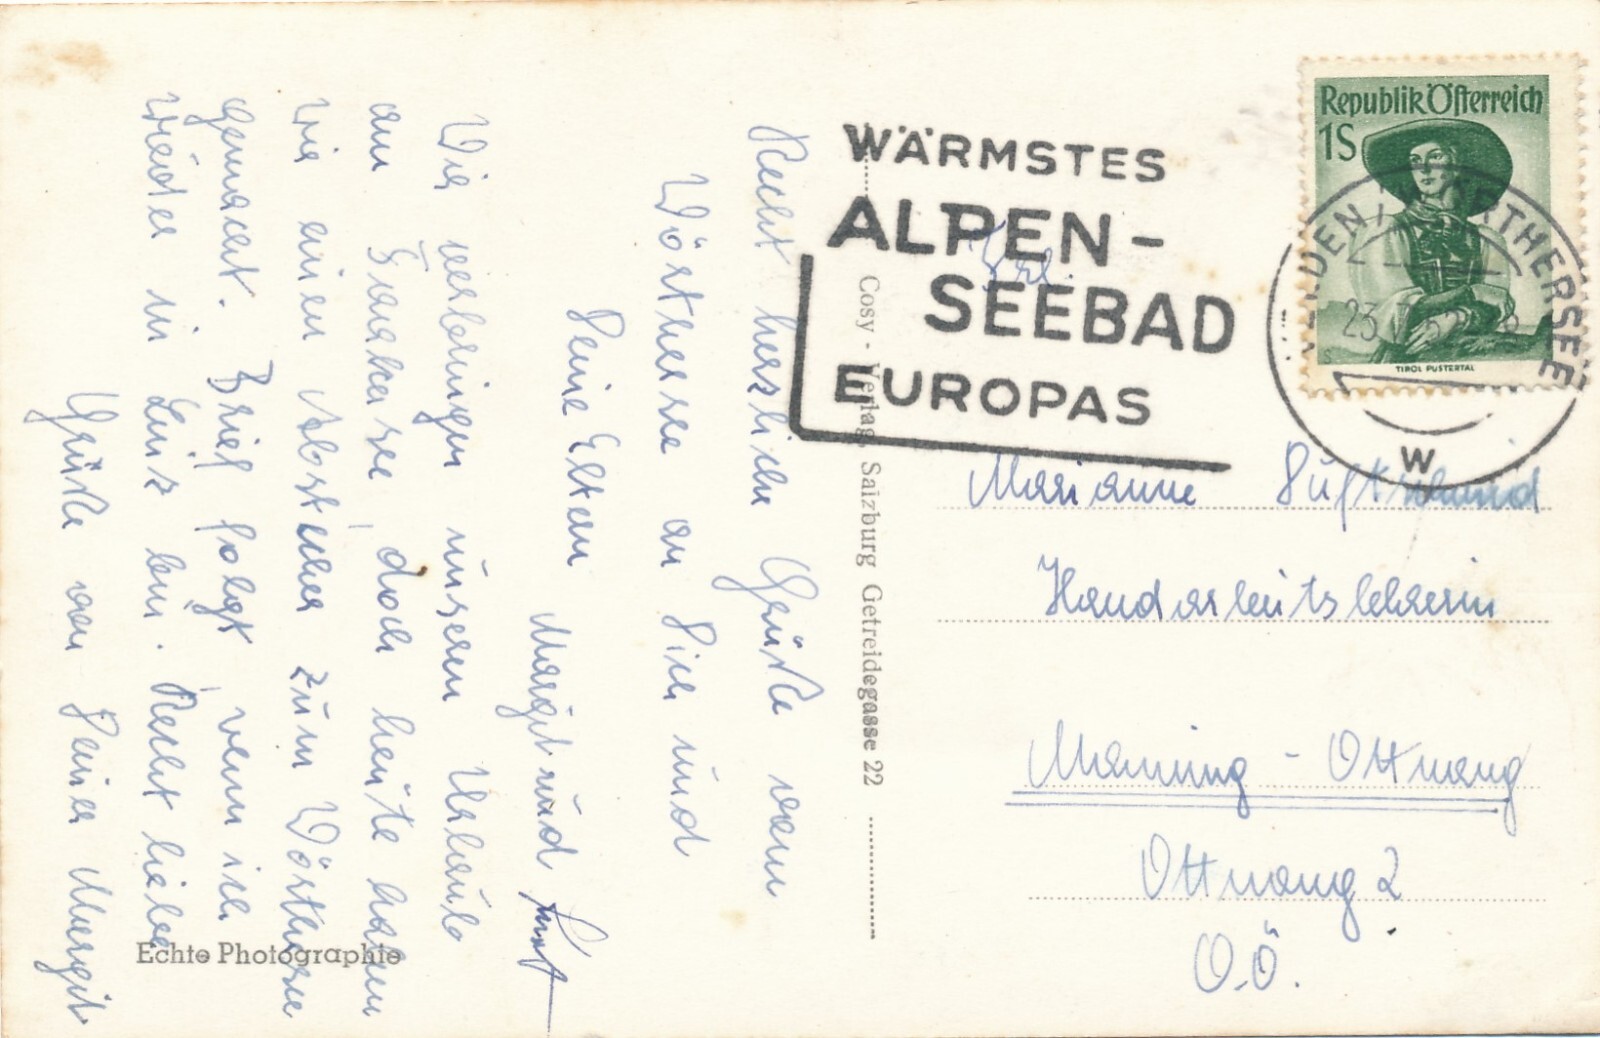 Recht herzliche Grüße vom
Wörthersee an Dich und
Deine Eltern
Margit und
Wir verbringen unseren Urlaub
am Faakersee, doch heute haben
wir einen Abstecher zum Wörthersee
gemacht. Brief folgt, wenn ich
wieder in Linz bin. Recht liebe
Grüße von Deiner Margit
Echte Photographie
Cosy - Verlag, Salzburg Getreidegasse 22
WÄRMSTES
ALPEN-
SEEBAD
EUROPAS
Republik Österreich
1S
TIROL PUSTERTAL
VELDEN / WÖRTHERSEE
23
W
Frl.
Marianne
Handarbeitslehrerin
Manning - Ottnang
Ottnang 2
O.Ö.